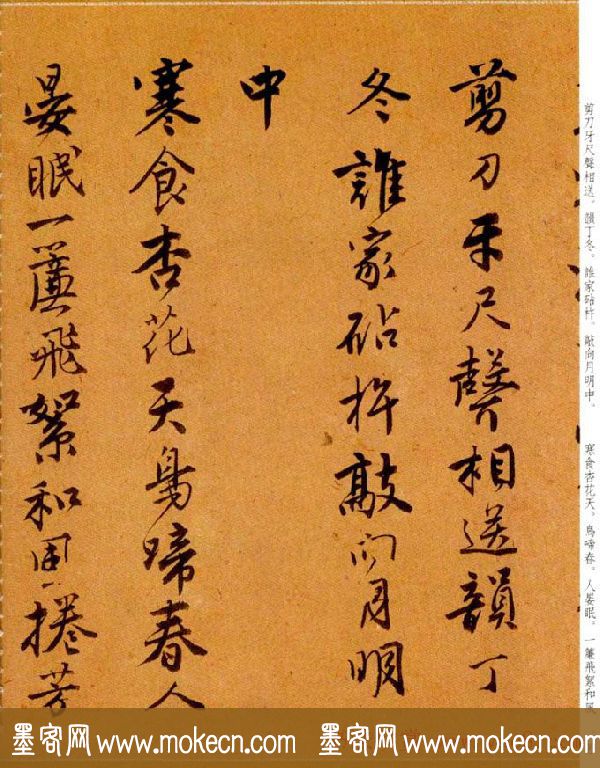 剪刀牙尺聲相送。韻丁冬。誰家砧杵。敲向月明中。　寒食杏花天。鳥啼春。人晏眠。一簾飛絮和風
剪刀牙尺聲相送韻丁
冬誰家砧杵敲向月明
中
寒食杏花天鳥啼春人
晏眠一簾飛絮和風捲芳
墨客网 www.mokecn.com 墨客网 www.mokecn.com